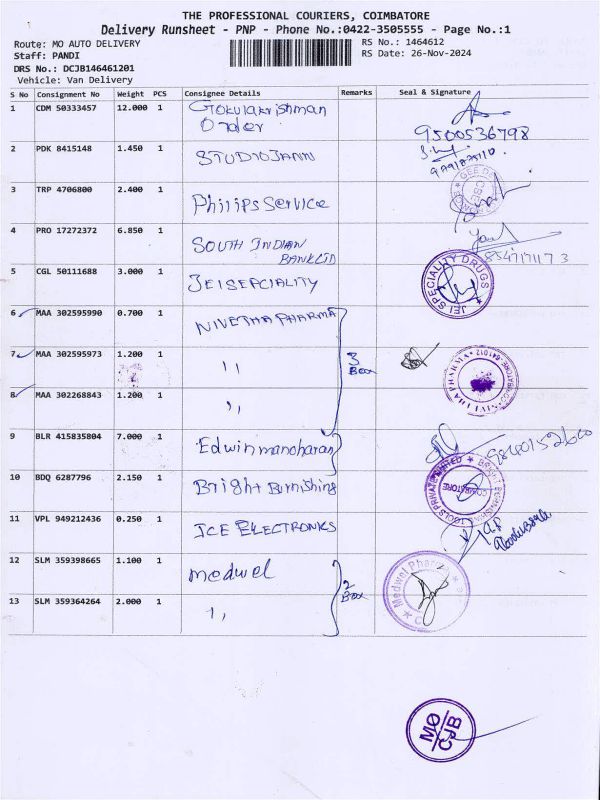 THE PROFESSIONAL COURIERS, COIMBATORE
Delivery Runsheet - PNP - Phone No.:0422-3505555 - Page No.:1
Route: MO AUTO DELIVERY
RS No.: 1464612
Staff: PANDI
RS Date: 26-Nov-2024
DRS No.: DCJB146461201
Vehicle: Van Delivery
S No Consignment No Weight PCS Consignee Details Remarks Seal & Signature
1 CDM 50333457 12.000 1 Gokulakrishnan
Order
9500536798
2 PDK 8415148 1.450 1 STUDIOJANN
3 TRP 4706800 2.400 1 Philips Service
4 PRO 17272372 6.850 1 SOUTH INDIAN
BANK LTD
5 CGL 50111688 3.000 1 JEISEPCIALITY
JEI SPECIALITY DRUGS
6 MAA 302595990 0.700 1 NIVETHA PHARMA
7 MAA 302595973 1.200 1 ,, 3
Box
8 MAA 302268843 1.200 1 ,,
9 BLR 415835804 7.000 1 Edwin manoharan
9840152600
10 BDQ 6287796 2.150 1 Bright Burnishing
COIMBATORE
11 VPL 949212436 0.250 1 JCE ELECTRONICS
12 SLM 359398665 1.100 1 medwel 2
Box
Medwel Pharma
13 SLM 359364264 2.000 1 ,,
MO
CJB